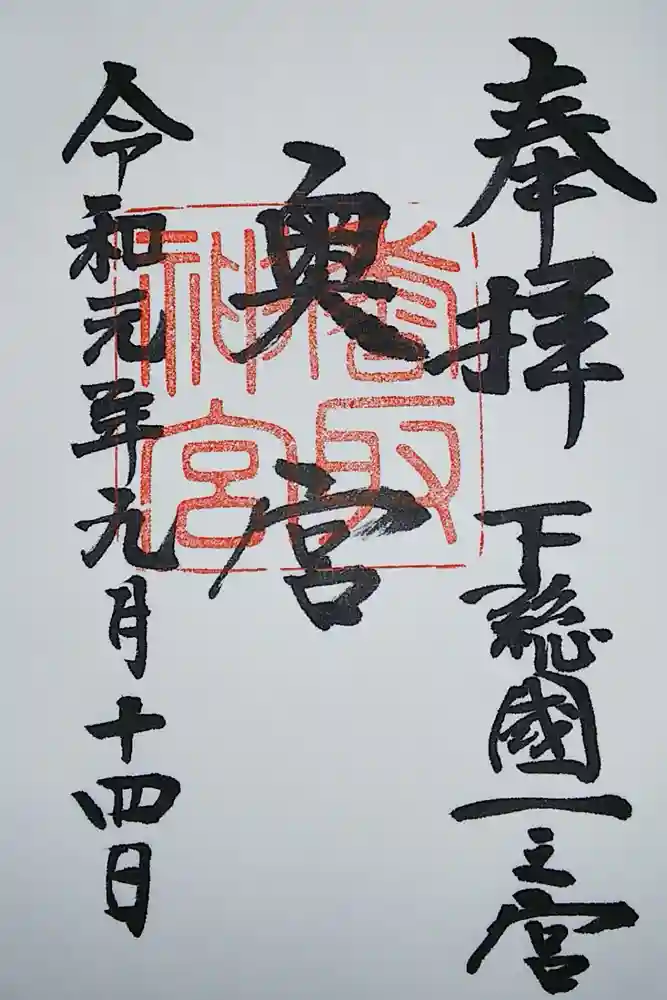 奉拝
下総國一之宮
奥宮
香取神宮
令和元年九月十四日